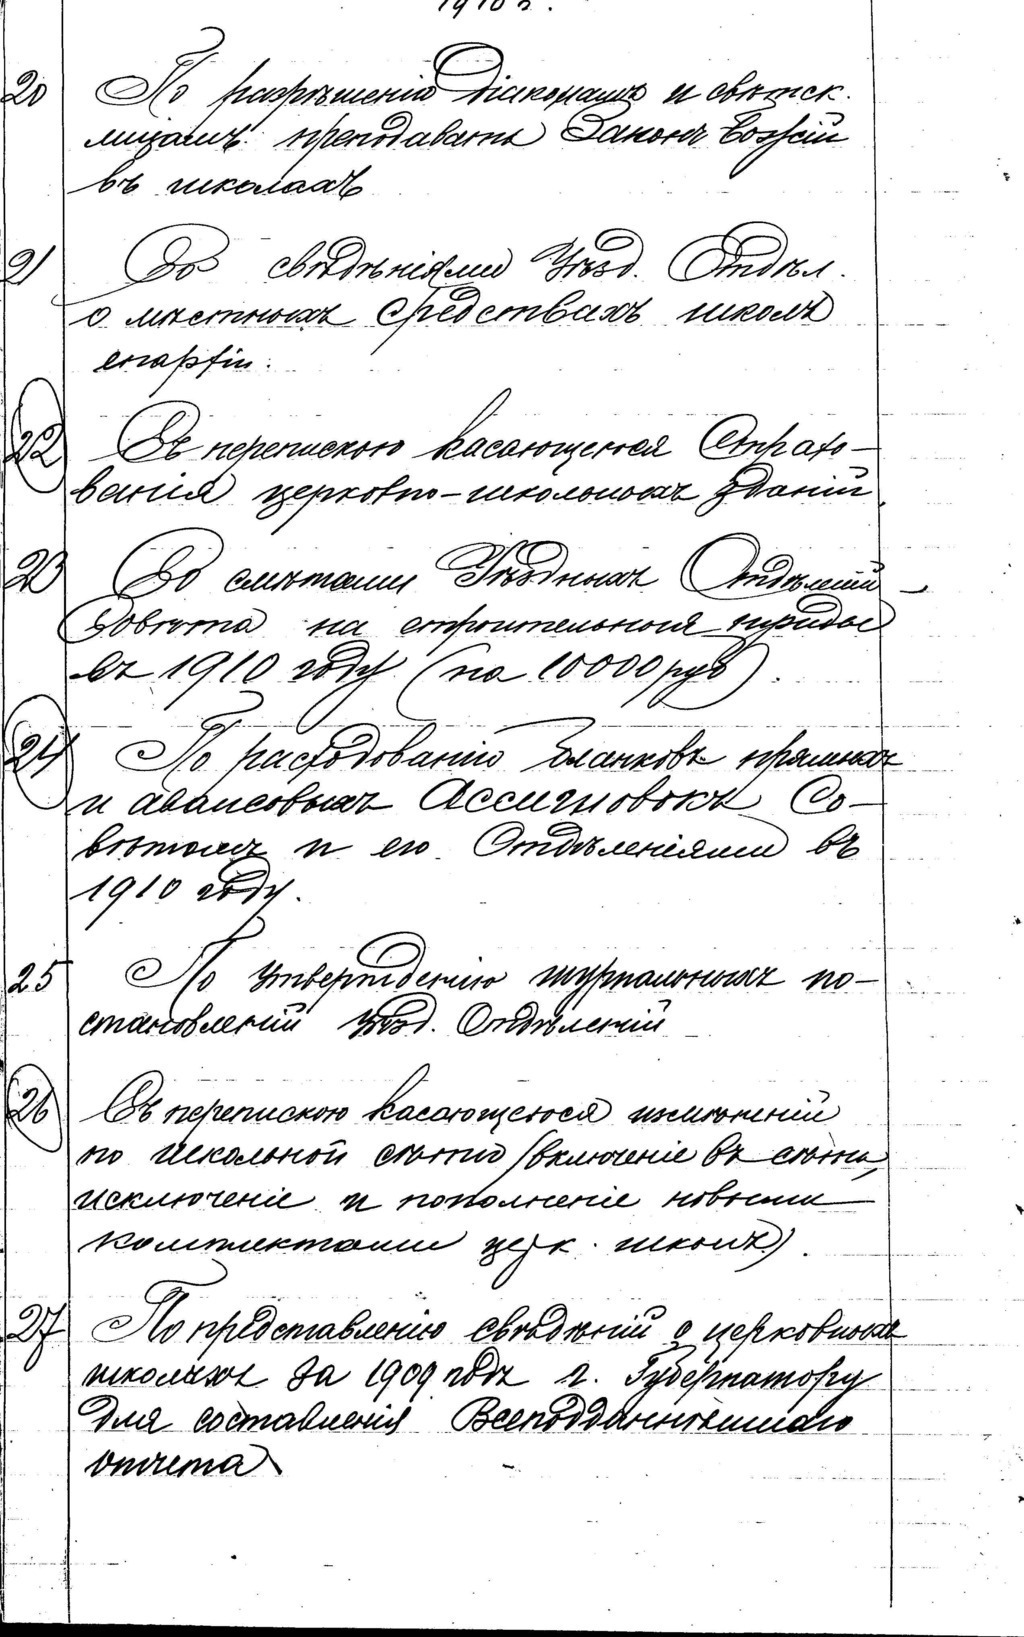 1910 г.
20 По разрѣшенію діаконамъ и свѣтск.
лицамъ преподавать Законъ Божій
въ школахъ
21 Со свѣдѣніями Уѣзд. Отдѣл.
о мѣстныхъ средствахъ школъ
епархіи.
22 Съ перепискою касающеюся Страхо-
ванія церковно-школьныхъ зданій
23 Со смѣтами Уѣздныхъ Отдѣленій
Совѣта на строительныя нужды
въ 1910 году (на 10000 руб)
24 По расходованію бланковъ прямыхъ
и авансовыхъ Ассигновокъ Со-
вѣтомъ и его Отдѣленіями въ
1910 году.
25 По утвержденію журнальныхъ по-
становленій Уѣзд. Отдѣленій
26 Съ перепискою касающеюся измѣненій
по школьной сѣти (включеніе въ сѣть,
исключеніе и пополненіе новыми
комплектами церк. школъ)
27 По представленію свѣдѣній о церковныхъ
школахъ за 1909 годъ г. Губернатору
для составленія Всеподданнѣйшаго
отчета